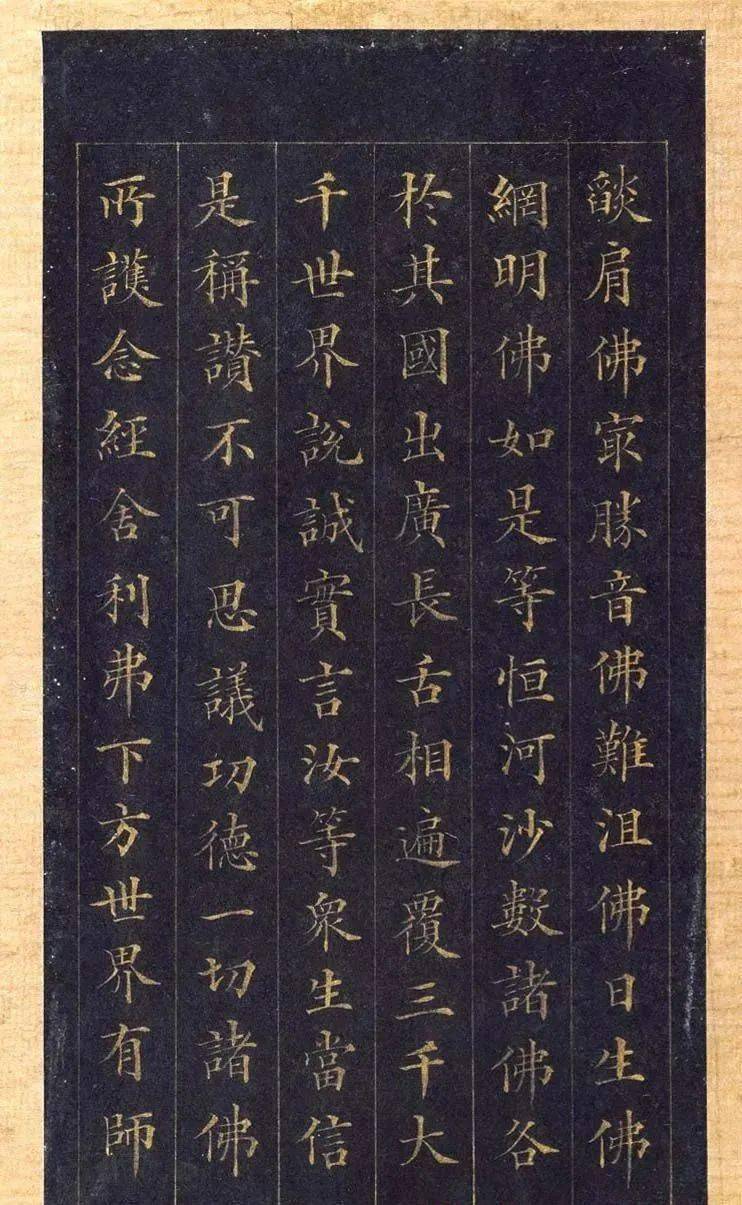 燄肩佛冣勝音佛難沮佛日生佛
網明佛如是等恒河沙數諸佛各
於其國出廣長舌相遍覆三千大
千世界說誠實言汝等衆生當信
是稱讚不可思議功德一切諸佛
所護念經舍利弗下方世界有師